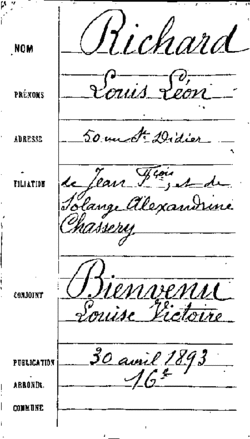 NOM Richard
PRÉNOMS Louis Léon
ADRESSE 50 rue St Didier
FILIATION de Jean Fçois, et de
Solange Alexandrine
Chassery
CONJOINT Bienvenu
Louise Victoire
PUBLICATION 30 avril 1893
ARRONDt. 16e
COMMUNE